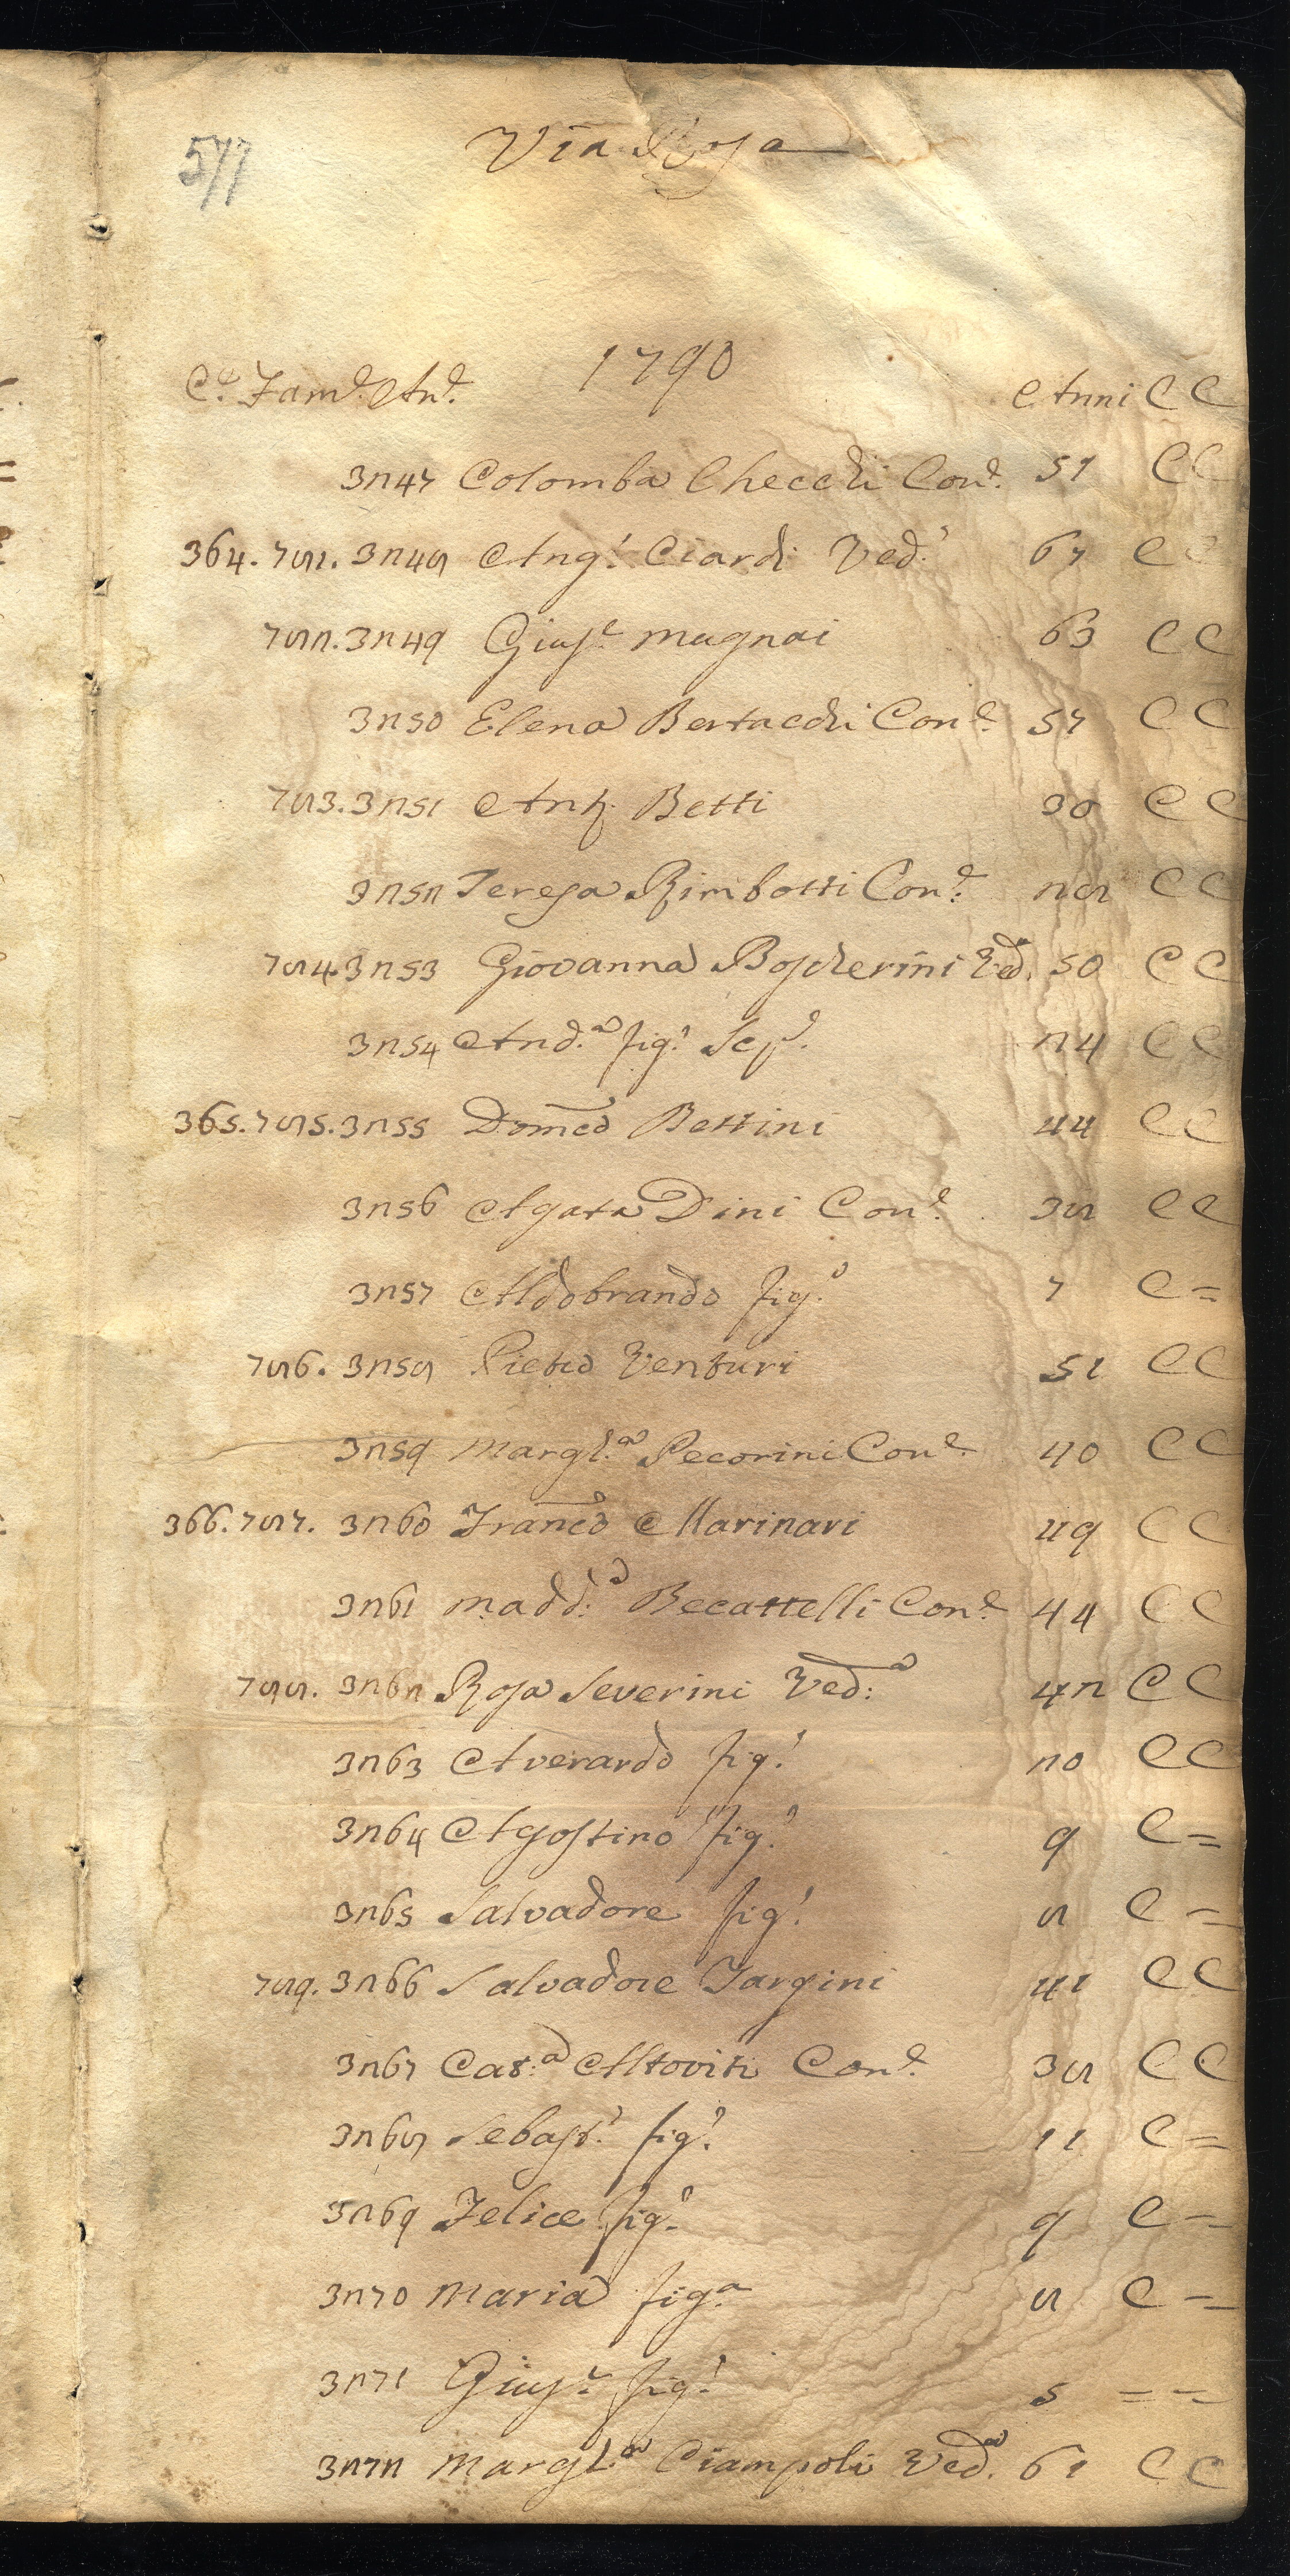 577
Via Rosa
1790
C.e Fam.e An.e Anni C C
3247 Colomba Checchi Con.e 57 C C
364. 781. 3248 Ang.o Ciardi Ved.o 67 C C
782. 3249 Gius.e Magnai 63 C C
3250 Elena Bertacchi Con.e 57 C C
783. 3251 Ant.o Betti 30 C C
3252 Teresa Rimbotti Con.e 28 C C
784 3253 Giovanna Boscherini Ved.a 50 C C
3254 And.a fig.o Sep.e 24 C C
365. 785. 3255 Domco Bettini 44 C C
3256 Agata Dini Con.e 38 C C
3257 Aldobrando fig.o 7 C =
786. 3258 Pietro Venturi 51 C C
3259 Margh.a Pecorini Con.e 40 C C
366. 787. 3260 Franco Marinari 49 C C
3261 Madd.a Becattelli Con.e 44 C C
788. 3262 Rosa Severini Ved.a 42 C C
3263 Averardo fig.o 20 C C
3264 Agostino fig.o 9 C =
3265 Salvadore fig.o 8 C =
789. 3266 Salvadore Targini 41 C C
3267 Cat.a Altoviti Con.e 38 C C
3268 Sebast.o fig.o 11 C =
3269 Felice fig.o 9 C =
3270 Maria fig.a 8 C =
3271 Gius.e fig.o 5 = =
3272 Margh.a Ciampoli Ved.a 61 C C